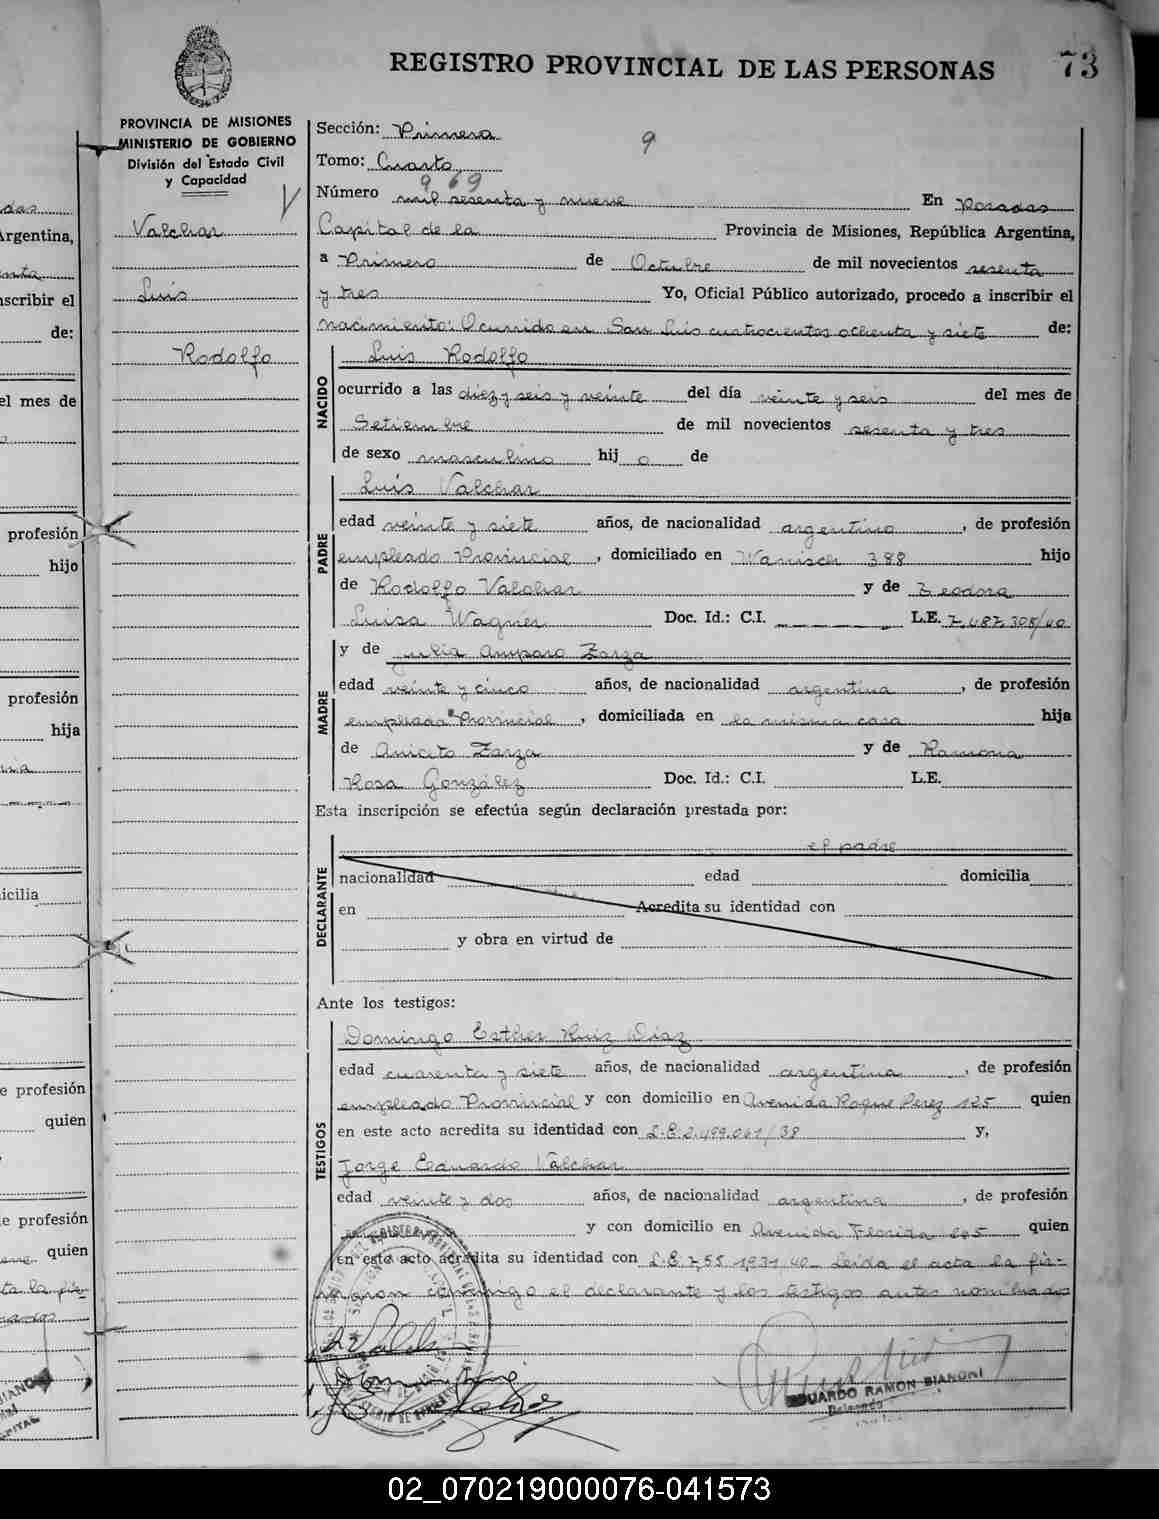 REGISTRO PROVINCIAL DE LAS PERSONAS 73
PROVINCIA DE MISIONES
MINISTERIO DE GOBIERNO
División del Estado Civil
y Capacidad
Valchar
Luis
Rodolfo
Sección: Primera 9
Tomo: Cuarto
969
Número mil sesenta y nueve En Posadas
Capital de la Provincia de Misiones, República Argentina,
a Primero de Octubre de mil novecientos sesenta
y tres Yo, Oficial Público autorizado, procedo a inscribir el
nacimiento: Ocurrido en San Luis cuatrocientos ochenta y siete de:
NACIDO
Luis Rodolfo
ocurrido a las diez y seis y veinte del día veinte y seis del mes de
Setiembre de mil novecientos sesenta y tres
de sexo masculino hij o de
PADRE
Luis Valchar
edad veinte y siete años, de nacionalidad argentino, de profesión
empleado Provincial, domiciliado en 388 hijo
de Rodolfo Valchar y de Teodora
Luisa Wagner Doc. Id.: C.I. L.E. 7.487.308/40
MADRE
y de Julia Amparo Zarza
edad veinte y cinco años, de nacionalidad argentina, de profesión
empleada Provincial, domiciliada en la misma casa hija
de Aniceto Zarza y de Ramona
Rosa González Doc. Id.: C.I. L.E.
Esta inscripción se efectúa según declaración prestada por:
DECLARANTE
el padre
nacionalidad edad domicilia
en Acredita su identidad con
y obra en virtud de
Ante los testigos:
TESTIGOS
Domingo Esther Ruiz Diaz
edad cuarenta y siete años, de nacionalidad argentina, de profesión
empleado Provincial y con domicilio en Avenida Roque Perez 125 quien
en este acto acredita su identidad con L.E. 2.499.061/38 y,
Jorge Eduardo Valchar
edad veinte y dos años, de nacionalidad argentina, de profesión
y con domicilio en Avenida Florida quien
en este acto acredita su identidad con L.E. 7.55 1931/40 Leída el acta la fir-
maron conmigo el declarante y los testigos antes nombrados
EDUARDO RAMON BIANCHI
Delegado
02_070219000076-041573